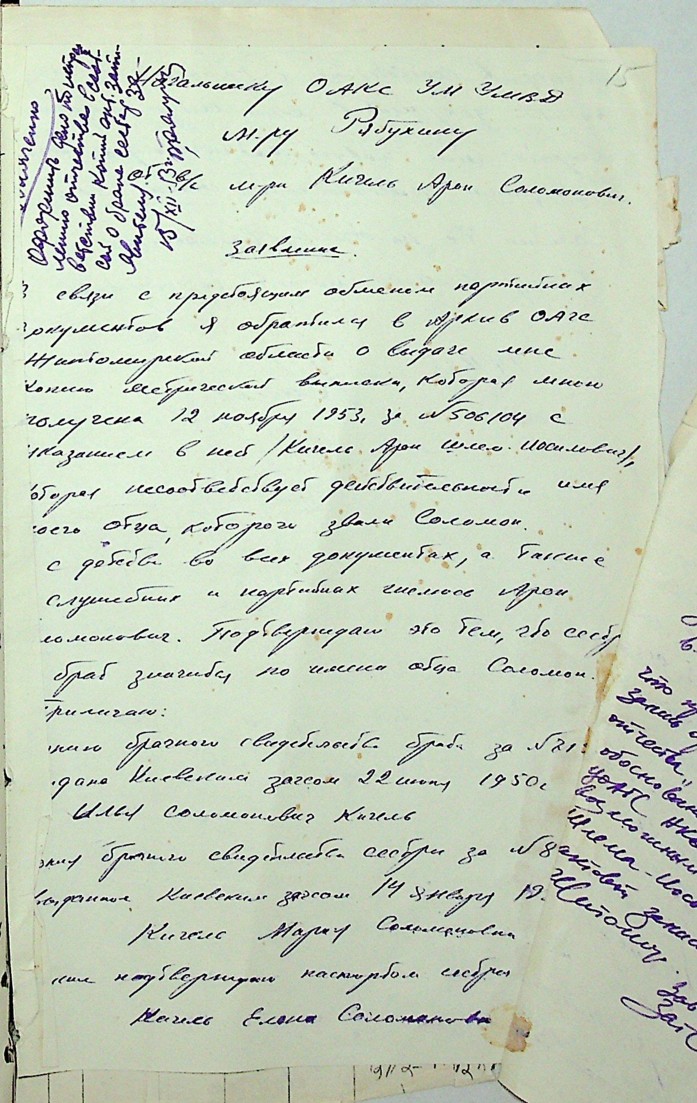 15
Оформить дело по изме-
нению отчества
15/XII
Начальнику ОАГС УМ УМВД
м-ру Рябухину
от в/с м-ра Кигель Арон Соломонович.
Заявление.
связи с предстоящим обменом партийных
документов я обратился в Архив ОАГС
Житомирской области о выдаче мне
копию метрической выписки, которая мною
получена 12 ноября 1953, за №506104 с
указанием в ней /Кигель Арон Шлео. Иосилович/,
которая несоответствует действительности имя
моего отца, которого звали Соломон.
с детства во всех документах, а также
служебных и партийных числюсь Арон
Соломонович. Подтверждаю это тем, что сестр
брат значится по имени отца Соломон.
Прилагаю:
копию брачного свидетельства брата за №21
дано Киевским загсом 22 июня 1950г
Илья Соломонович Кигель
копия брачного свидетельства сестры за №8
выданное Киевским загсом 14 января 19
Кигель Мария Соломоновна
подтверждаю паспортом сестры
Кигель Елена Соломоновн
что
запись
отчества,
обоснован
возможным
Шлема-Иосе
актовую запись
Житомир. Зав
ЗАГС